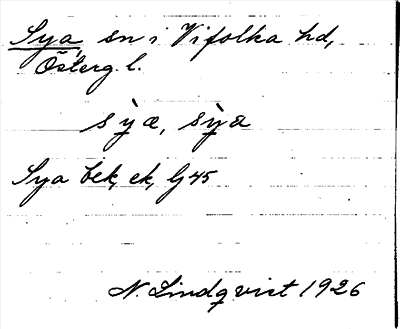 Sya, sn i Vifolka hd,
Österg. l.
sỳæ, sỳa
Sya bek, ek, lj 45
N. Lindqvist 1926